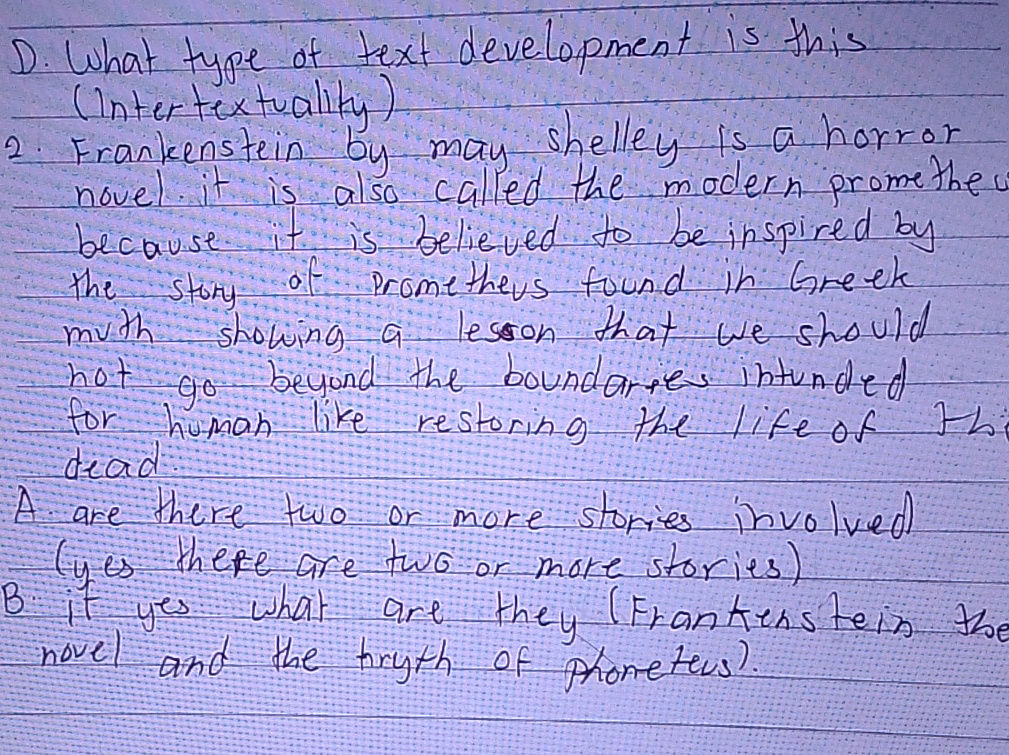 D. What type of text development is this
(Intertextuality)
2. Frankenstein by may shelley is a horror
novel. it is also called the modern prometheu
because it is believed to be inspired by
the story of Prometheus found in Greek
muth showing a lesson that we should
not go beyond the boundarres intunded
for human like restoring the life of thi
dead.
A. are there two or more stories involved
(yes there are two or more stories)
B. if yes what are they (Frankenstein the
novel and the hryth of phometeus).